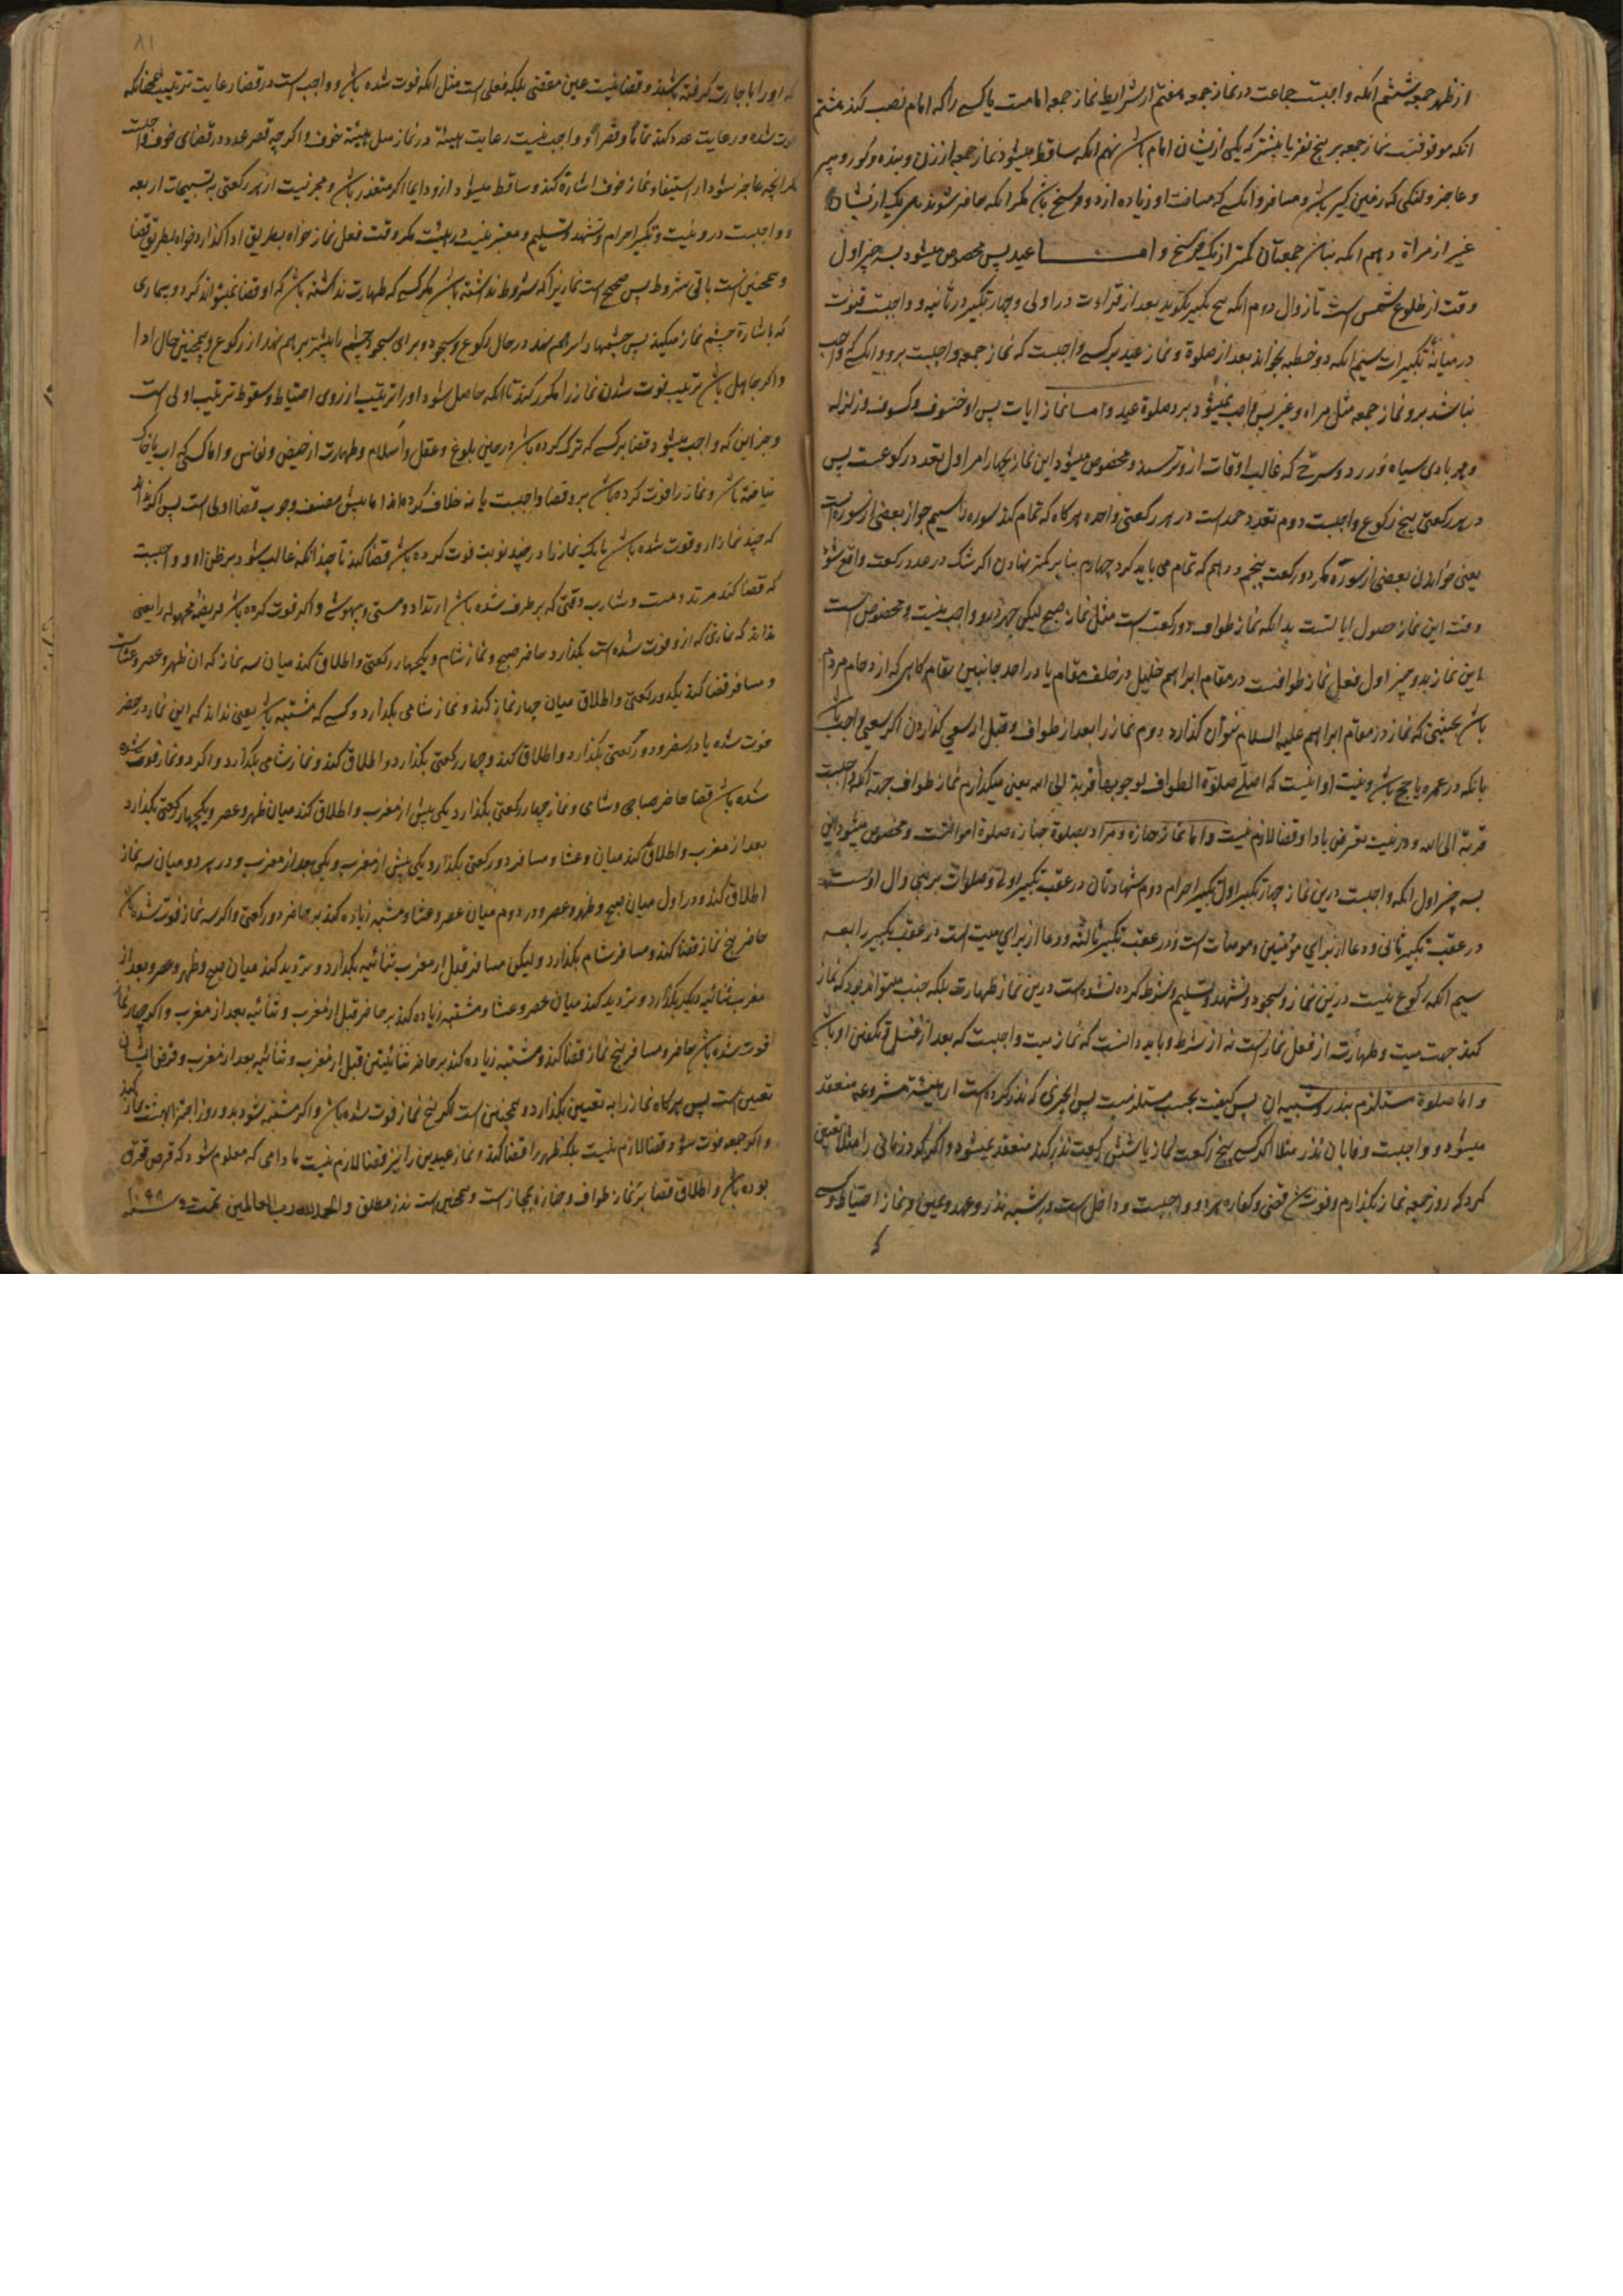 از ظهر جمعه ششم آنکه واجبست جماعت در نماز جمعه هفتم از شرایط نماز جمعه امامست یا کسی را که امام نصب کند هشتم
آنکه موقوفست نماز جمعه بر پنج نفر یا بیشتر که یکی ازیشان امام باشد نهم آنکه ساقط میشود نماز جمعه از زن و بنده و کور و پیر
و عاجز و لنگی که زمین گیر باشد و مسافر و آنکسی که مسافت او زیاده از دو فرسخ باشد مگر آنکه حاضر شوند هر یک ازیشان
غیر از مراة دهم آنکه نباشد جمعتان کمتر از یک فرسخ و اما عید پس مخصوص میشود بسه چیز اول
وقت از طلوع شمس است تا زوال دوم آنکه پنج تکبیر بگوید بعد از قراءت در اولی و چهار تکبیر در ثانیه و واجبست قنوت
در میانه تکبیرات سیم آنکه دو خطبه بخواند بعد از صلوة و نماز عید بر کسی واجبست که نماز جمعه واجبست برو و آنکسی که واجب
نباشد برو نماز جمعه مثل مراه و غیر پس واجب نمیشود برو صلوة عید و اما نماز آیات پس او خسوف و کسوف و زلزله
و هر بادی سیاه و زرد و سرخی که غالب اوقات ازو ترسند و مخصوص میشود این نماز بچهار امر اول تعدد رکوعست پس
در هر رکعتی پنج رکوع واجبست دوم تعدد حمد است در هر رکعتی واحده هرگاه که تمام کند سوره را سیم جواز بعضی از سوره است
یعنی خواندن بعضی از سوره مگر در رکعت پنجم و دهم که تمام می باید کرد چهارم بنا بر کمتر نهادن اگر شک در عدد رکعت واقع شود
وقت این نماز حصول آیا تست بدانکه نماز طواف دو رکعت است مثل نماز صبح لیکن جهر درو واجب نیست و مخصوص است
این نماز بدو چیز اول فعل نماز طوافست در مقام ابراهیم خلیل در خلف مقام یا در احد جانبین مقام گاهی که ازدحام مردم
باشد بحیثیتی که نماز در مقام ابراهیم علیه السلام نتوان گذارد دوم نماز را بعد از طواف و قبل از سعی گذاردن اگر سعی واجب باشد
بآنکه در عمره یا حج باشد و نیت او اینست که اصلی صلوة الطواف لوجوبها قربة الی الله یعنی میگذارم نماز طواف جهة آنکه واجبست
قربة الی الله و در نیت تعرض بادا و قضا لازم نیست و اما نماز جنازه و مراد بصلوة جنازه صلوة امواتست و مخصوص میشود این
بسه چیز اول آنکه واجبست درین نماز چهار تکبیر اول تکبیر احرام دوم شهادتان در عقب تکبیر اولی و صلوات بر نبی و آل اوست
در عقب تکبیر ثانی و دعا از برای مؤمنین و مومنات است و در عقب تکبیر ثالثه و دعا از برای میت است در عقب تکبیر رابعه
سیم آنکه رکوع نیست درین نماز و سجود و تشهد و تسلیم و شرط کرده نشده است درین نماز طهارت بلکه جنب میتواند بود که نماز
کند جهت میت و طهارت از فعل نماز است نه از شرط و باید دانست که نماز میت واجبست که بعد از غسل و تکفین او باشد
و اما صلوة مستلزم بنذر و شبیه ان پس کیفیت بحسب مستلزمست پس آنچیزی که نذر کرده است از هیئة مشروعه منعقد
میشود و واجبست وفا بان نذر مثلا اگر کسی پنج رکعت نماز یا شش رکعت نذر کند منعقد نمیشود و اگر گرد زمانی را مثلا تعیین
کرد که روز جمعه نماز بگذارم و فوت شد قضی و کفاره برو واجبست و داخلست در شبه نذر و عهد و یمین و نماز احتیاط و کسی
که
۸۱
که او را باجارت گرفته باشند و قضا نیست عین مقضی بلکه فعلی است مثل آنکه فوت شده باشد و واجب است در قضا رعایت ترتیب همچنانکه
فوت شده و رعایت عدد کند تماما و قصرا و واجب نیست رعایت هیئة در نماز مثل هیئة خوف و اگر چه قصر عدد در قضای خوف واجبست
مگر آنچه عاجز شود از استیفا و نماز خوف اشارة کند و ساقط میشود ازو و ایما اگر متعذر باشد و مجزیست از هر رکعتی به تسبیحات اربعه
و واجبست درو نیت و تکبیر احرام و تشهد و تسلیم و معتبر نیست مگر وقت فعل نماز خواه بطریق ادا گذارد خواه بطریق قضا
و همچنین است باقی شروط پس صحیح است نماز نیز اگر شروط نداشته باشد مگر کسی که طهارت نداشته باشد که او قضا نمیتواند کرد و بیماری
که باشارة چشم نماز میکند پس چشمها را بر هم نهد در حال رکوع و سجود و برای سجود چشم را بیشتر بر هم نهد از رکوع و همچنین حال ادا
و اگر جاهل باشد ترتیب فوت شدن نماز را مکرر کند تا آنکه حاصل شود او را ترتیب از روی احتیاط و سقوط ترتیب اولی است
و جز این که واجب میشود قضا بر کسی که ترک کرده باشد در حین بلوغ و عقل و اسلام و طهارت از حیض و نفاس و اما کسی که آب یا خاک
نیافته باشد و نماز را فوت کرده باشد برو قضا واجبست یا نه خلاف کرده‌اند اما پیش مصنف وجوب قضا اولی است پس اگر نداند
که چند نماز از و فوت شده باشد یا یک نماز را در چند نوبت فوت کرده باشد قضا کند تا چندانکه غالب شود بر ظن او و واجبست
که قضا کند مرتد و مست و شارب وقتی که برطرف شده باشد ارتداد و مستی و بیهوشی و اگر فوت کرده باشد فریضه مجهوله را یعنی
نداند که نمازی که ازو فوت شده است بگذارد حاضر صبح و نماز شام و یک چهار رکعتی و اطلاق کند میان سه نماز که ان ظهر و عصر و عشاست
و مسافر قضا کند یکدو رکعتی و اطلاق میان چهار نماز کند و نماز شامی بگذارد و کسی که مشتبه باشد یعنی نداند که این نماز در حضر
فوت شده یا در سفر دو رکعتی بگذارد و اطلاق کند و چهار رکعتی بگذارد و اطلاق کند و نماز شامی بگذارد و اگر دو نماز فوت شده
شده باشد قضا حاضر صباحی و شامی و نماز چهار رکعتی بگذارد یکی پیش از مغرب و اطلاق کند میان ظهر و عصر و یکچهار رکعتی بگذارد
بعد از مغرب و اطلاق کند میان و عشا و مسافر دو رکعتی بگذارد یکی پیش از مغرب و یکی بعد از مغرب و در هر دو میان سه نماز
اطلاق کند و در اول میان صبح و ظهر و عصر و در دوم میان عصر و عشا و مشتبه زیاده کند بر حاضر دو رکعتی و اگر سه نماز فوت شده باشد
حاضر پنج نماز قضا کند و مسافر شام بگذارد و لیکن مسافر قبل از مغرب ثنائیه بگذارد و تردید کند میان صبح و ظهر و عصر و بعد از
مغرب ثنائیه دیگر بگذارد و تردید کند میان عصر و عشا و مشتبه زیاده کند بر حاضر قبل از مغرب و ثنائیه بعد از مغرب و اگر چهار نماز
فوت شده باشد حاضر و مسافر پنج نماز قضا کند و مشتبه زیاده کند بر حاضر ثنائیتین قبل از مغرب و ثنائیه بعد از مغرب و قرض ایشان
تعین است پس هرگاه نماز را به تعیین بگذارد و همچنین است اگر پنج نماز فوت شده باشد و اگر مشتبه شود بدو روز اجتزا بهشت نماز کند
و اگر جمعه فوت شود قضا لازم نیست بلکه ظهر را قضا کند و نماز عیدین را نیز قضا لازم نیست مادامی که معلوم شود که قرص محترق
بوده باشد و اطلاق قضا بر نماز طواف و جنازه مجاز است و همچنین است نذر مطلق والحمد لله رب العالمین تمت سنه ۱۰۹۸